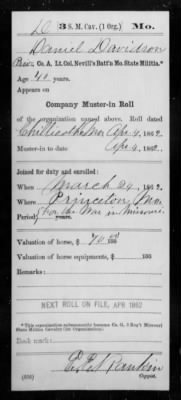 D 3 S. M. Cav. (1 Org.) Mo.
Daniel Davidson
Co. A, Lt. Col. Nevill's Batt'n Mo. State Militia.*
Age 40 years.
Appears on
Company Muster-in Roll
of the organization named above. Roll dated
Chillicothe Mo, Apr 4, 1862.
Muster-in to date Apr 4, 1862.
Joined for duty and enrolled:
When March 24, 1862.
Where Princeton, Mo.
For the War in Missouri
Period years.
Valuation of horse, $ 70 00/100
Valuation of horse equipments, $ 100
Remarks:
NEXT ROLL ON FILE, APR 1862
*This organization subsequently became Co. 3 Reg't Missouri
State Militia Cavalry (1st Organization).
Book mark:
Rankin
Copyist.